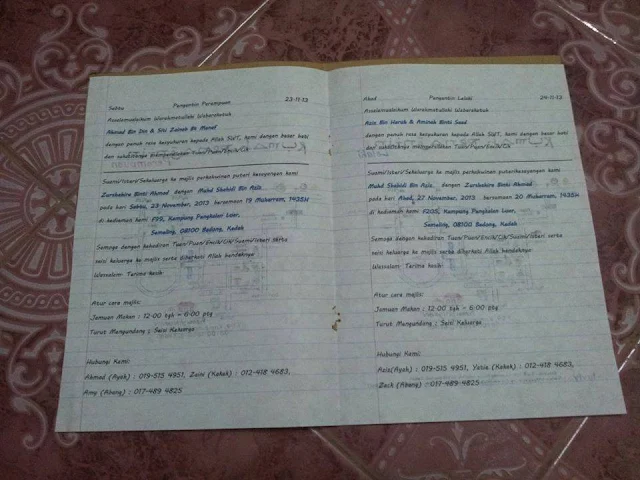 Sabtu Pengantin Perempuan 23-11-13
Assalamualaikum Warahmatullahi Wabarakatuh
Ahmad Bin Din & Siti Zainab Bt Manaf
dengan penuh rasa kesyukuran kepada Allah SWT, kami dengan besar hati
dan sukacitanya mempersilakan Tuan/Puan/Encik/Cik
Suami/Isteri/Sekeluarga ke majlis perkahwinan puteri kesayangan kami
Zurshakira Binti Ahmad dengan Muhd Shahdil Bin Azia
pada hari Sabtu, 23 November, 2013 bersamaan 19 Muharram, 1435H
di kediaman kami F99, Kampung Pengkalan Luar,
Semeling, 08100 Bedong, Kedah
Semoga dengan kehadiran Tuan/Puan/Encik/Cik/Suami/Isteri serta
seisi keluarga ke majlis serta diberkati Allah hendaknya
Wassalam. Terima kasih.
Atur cara majlis:
Jamuan Makan : 12:00 tgh - 6:00 ptg
Turut Mengundang ; Seisi Keluarga
Hubungi Kami:
Ahmad (Ayah) : 019-515 4951, Zaini (Kakak) : 012-418 4683,
Amy (Abang) : 017-489 4825
Ahad Pengantin Lelaki 24-11-13
Assalamualaikum Warahmatullahi Wabarakatuh
Azia Bin Harak & Aminah Binti Saad
dengan penuh rasa kesyukuran kepada Allah SWT, kami dengan besar hati
dan sukacitanya mempersilakan Tuan/Puan/Encik/Cik
Suami/Isteri/Sekeluarga ke majlis perkahwinan putera kesayangan kami
Muhd Shahdil Bin Azia dengan Zurshakira Binti Ahmad
pada hari Ahad, 27 November, 2013 bersamaan 20 Muharram, 1435H
di kediaman kami F205, Kampung Pengkalan Luar,
Semeling, 08100 Bedong, Kedah
Semoga dengan kehadiran Tuan/Puan/Encik/Cik/Suami/Isteri serta
seisi keluarga ke majlis serta diberkati Allah hendaknya
Wassalam. Terima kasih.
Atur cara majlis:
Jamuan Makan : 12:00 tgh - 6:00 ptg
Turut Mengundang ; Seisi Keluarga
Hubungi Kami:
Azia(Ayah) : 019-515 4951, Yatie (Kakak) : 012-418 4683,
Zack (Abang) : 017-489 4825